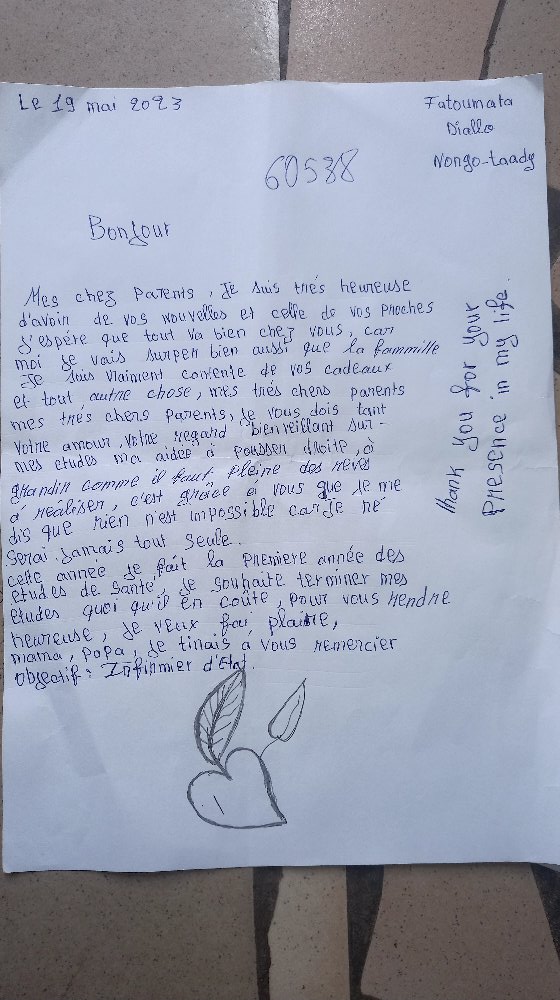 Le 19 mai 2023
Fatoumata
Diallo
Nongo-taady
60538
Bonjour
Mes chez Parents, Je suis très heureuse
d'avoir de vos nouvelles et celle de vos proches
J'espère que tout va bien chez vous, car
moi je vais superr bien aussi que la fammille
Je suis vraiment contente de vos cadeaux
et tout autre chose, mes très chers parents
mes très chers parents, Je vous dois tant
votre amour, votre regard bienveillant sur-
mes etudes ma aidée à pousser droite, à
grandir comme il faut, pleine des reves
à realiser, c'est grâce à vous que Je me
dis que rien n'est impossible car Je né
Serai Jamais tout seule.
cette année Je fait la Premiere année des
etudes de Santé, Je souhaite terminer mes
etudes quoi qu'il en coûte, pour vous rendre
heureuse, Je veux plaire,
mama, papa, Je tinais à vous remercier
objectif: Infirmier d'Etat.
thank you for your
Presence in my life.